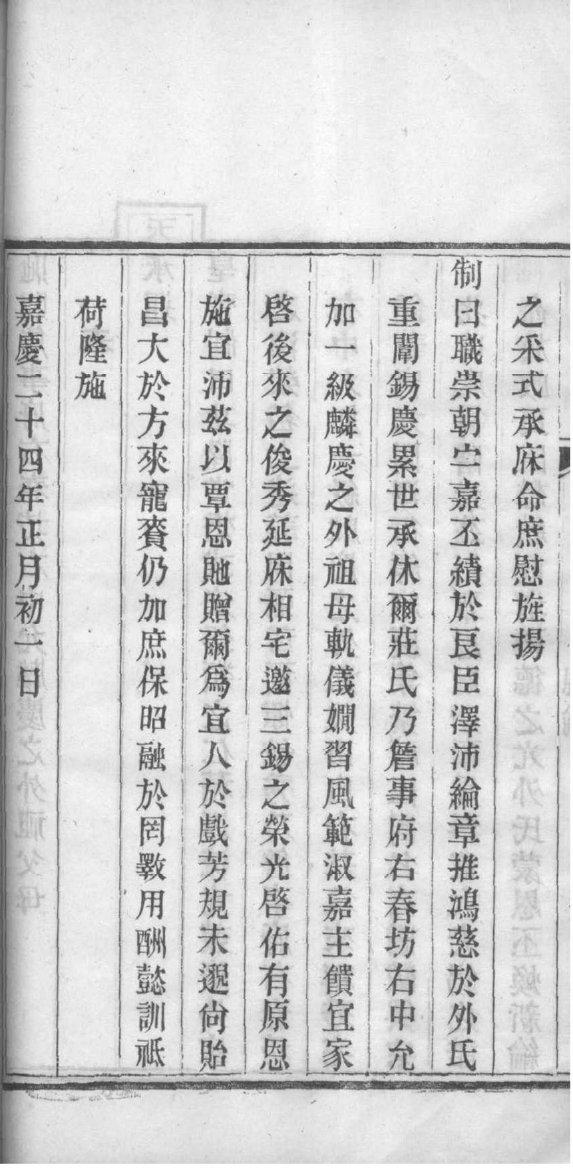 之采式承庥命庶慰旌揚
制曰職崇朝宁嘉丕績於良臣澤沛綸章推鴻慈於外氏
重闈錫慶累世承休爾莊氏乃詹事府右春坊右中允
加一級麟慶之外祖母軌儀嫺習風範淑嘉主饋宜家
啓後來之俊秀延庥相宅邀三錫之榮光啓佑有原恩
施宜沛茲以覃恩貤贈爾爲宜人於戲芳規未遐尙貽
昌大於方來寵賚仍加庶保昭融於罔斁用酬懿訓祗
荷隆施
嘉慶二十四年正月初一日